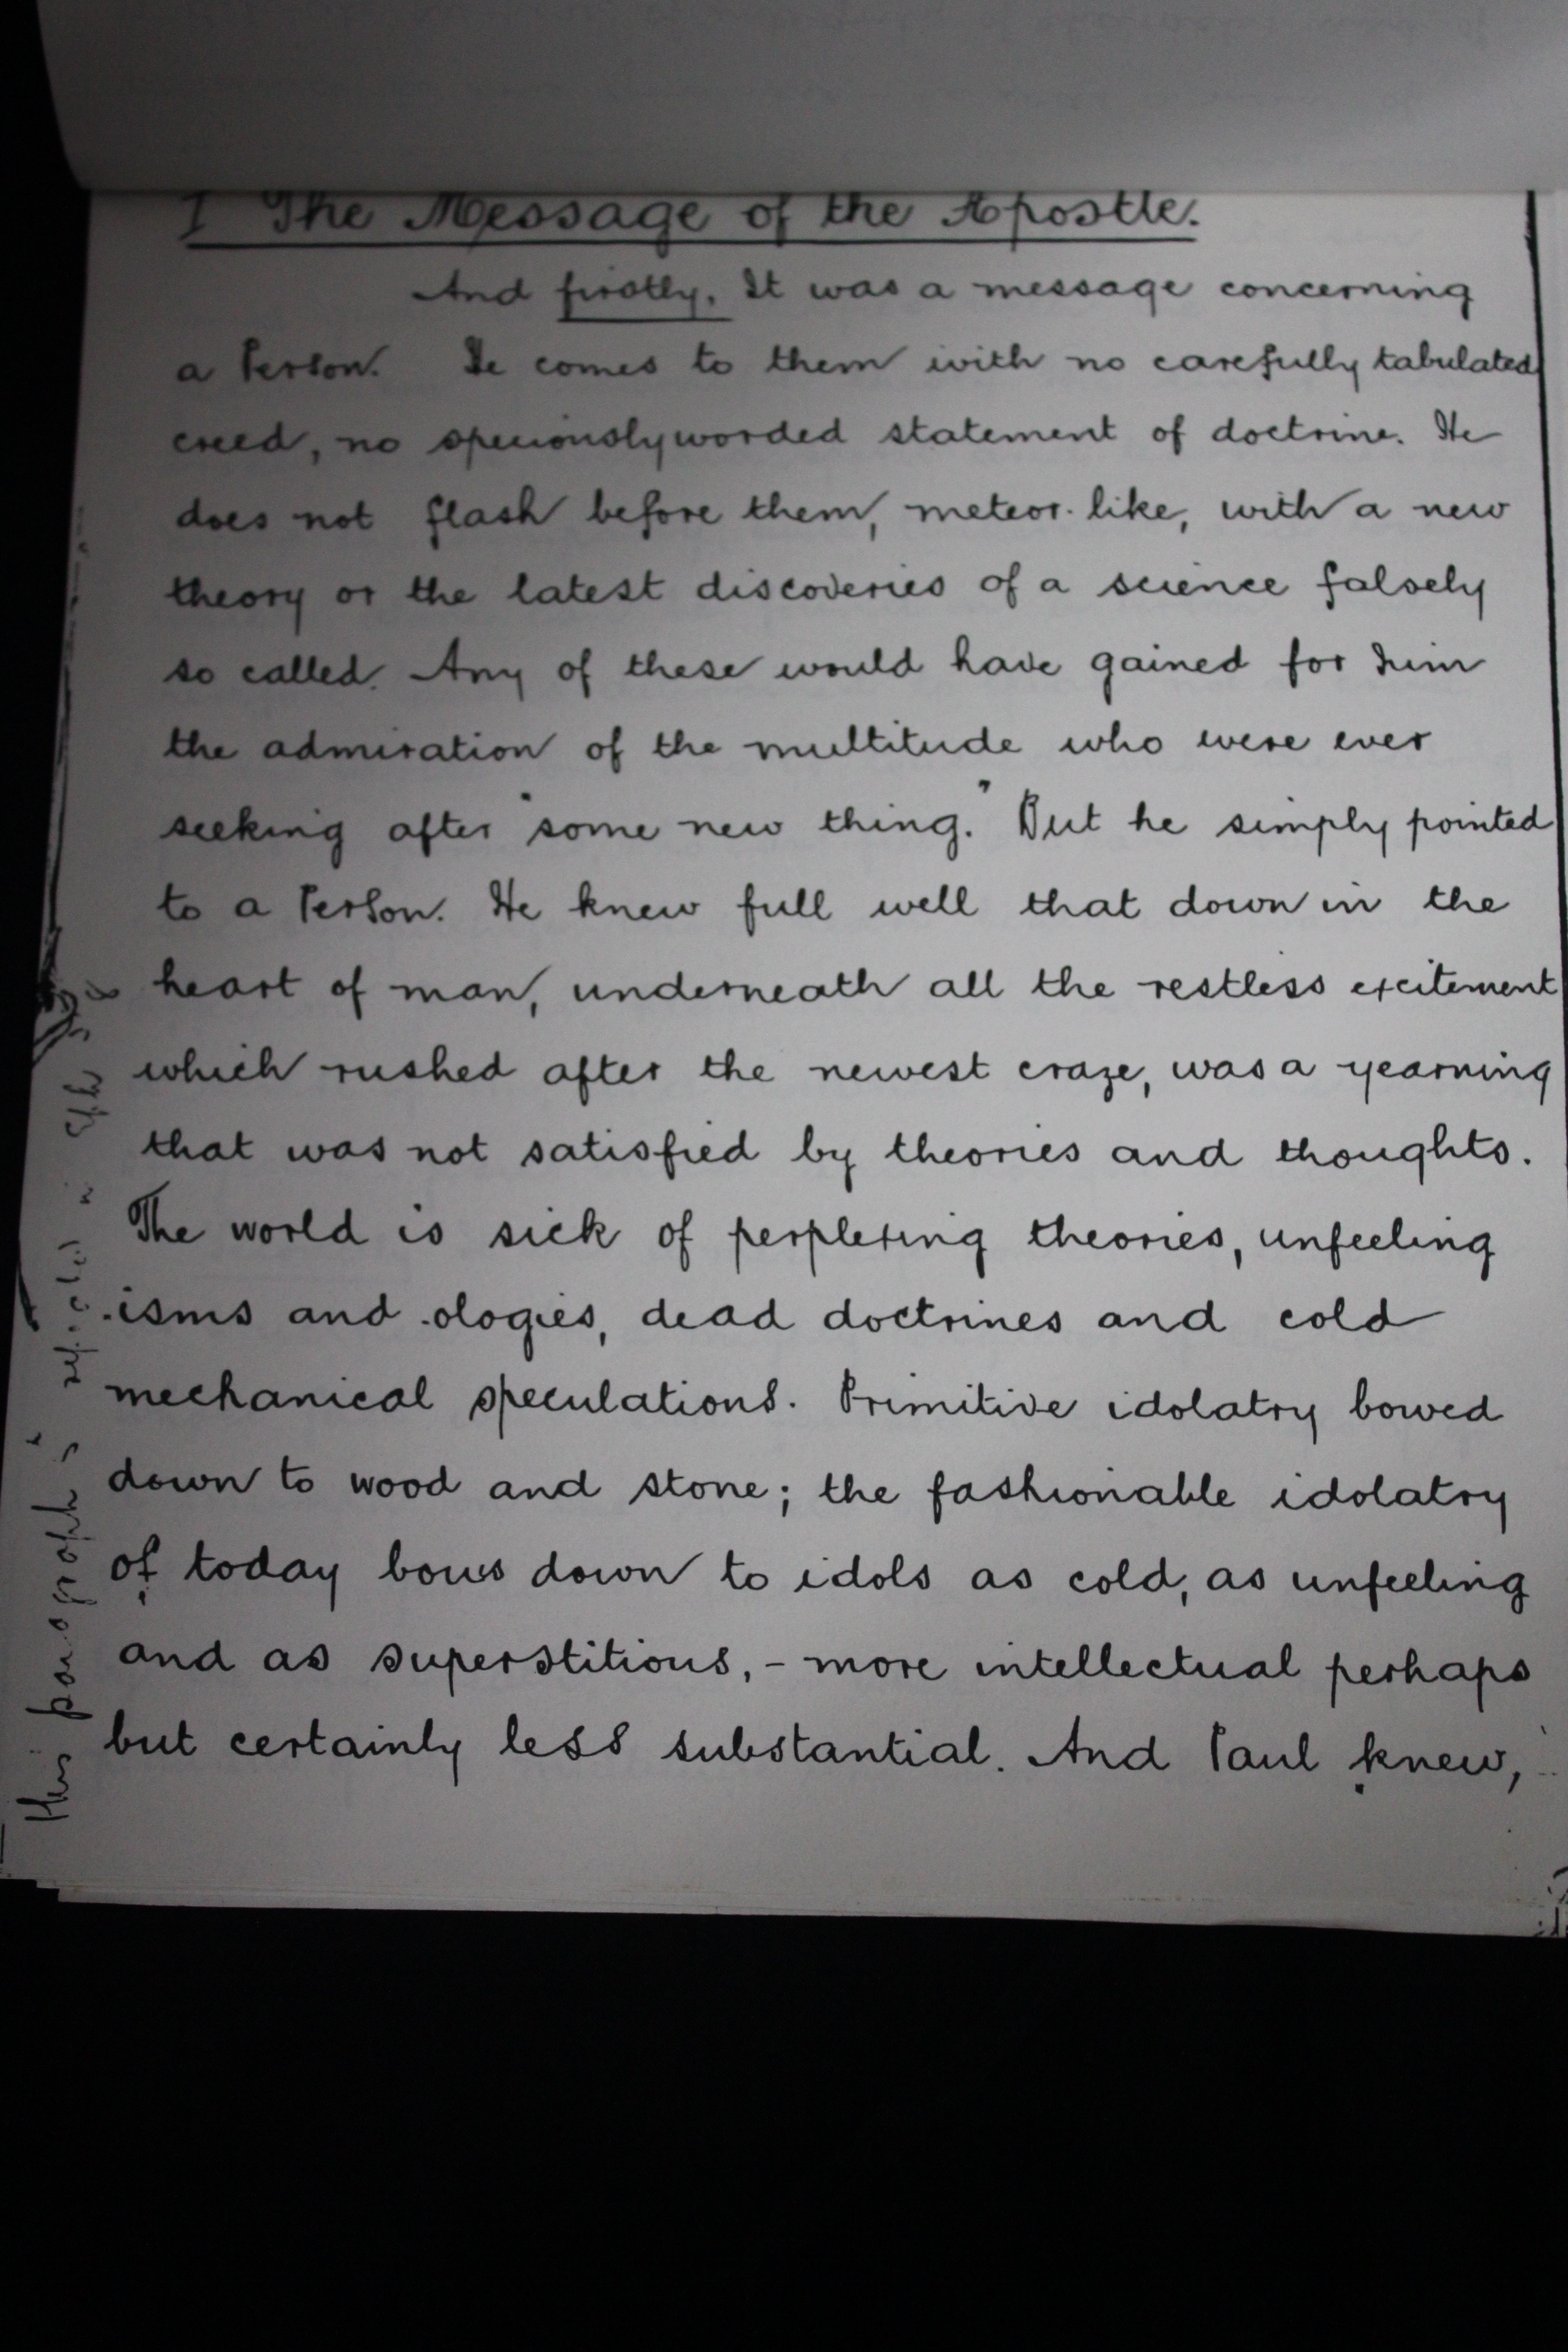 I The Message of the Apostle.
And firstly. It was a message concerning
a Person. He comes to them with no carefully tabulated
creed, no speciously worded statement of doctrine. He
does not flash before them, meteor-like, with a new
theory or the latest discoveries of a science falsely
so called. Any of these would have gained for him
the admiration of the multitude who were ever
seeking after "some new thing." But he simply pointed
to a Person. He knew full well that down in the
heart of man, underneath all the restless excitement
which rushed after the newest craze, was a yearning
that was not satisfied by theories and thoughts.
The world is sick of perplexing theories, unfeeling
-isms and -ologies, dead doctrines and cold
mechanical speculations. Primitive idolatry bowed
down to wood and stone; the fashionable idolatry
of today bows down to idols as cold, as unfeeling
and as superstitious, - more intellectual perhaps
but certainly less substantial. And Paul knew,
This paragraph is